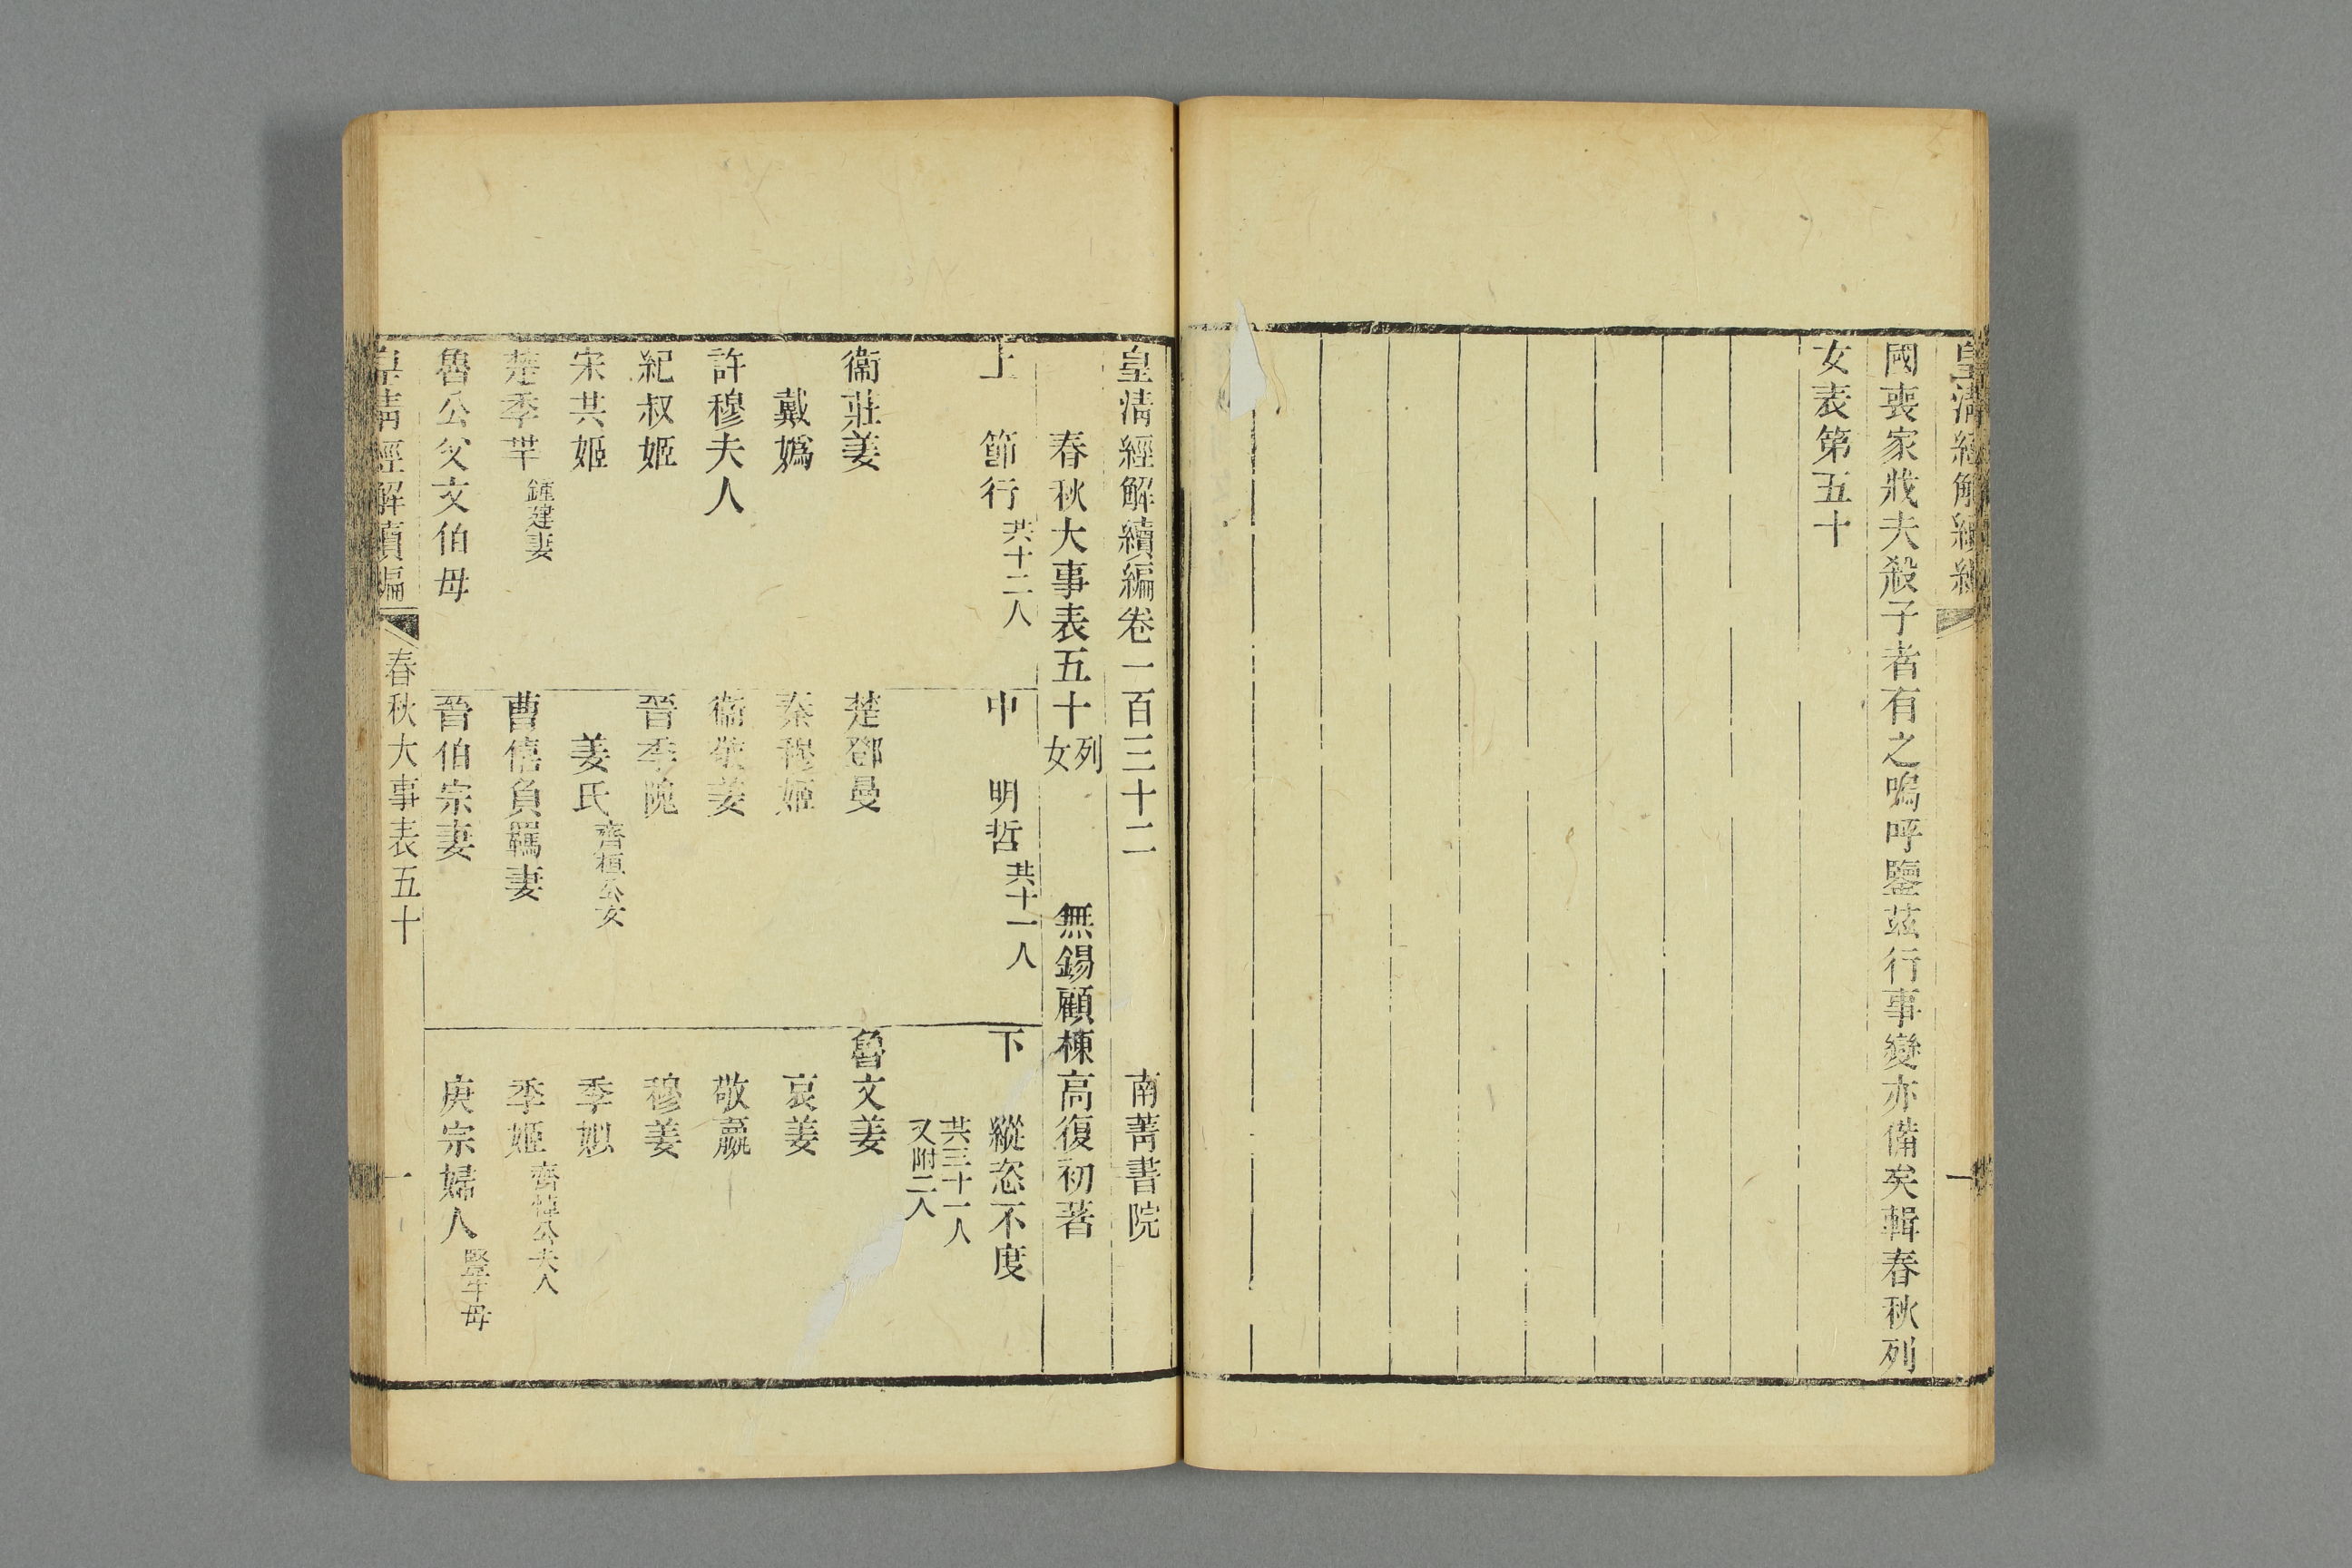 國喪家戕夫殺子者有之嗚呼鑒茲行事變亦備矣輯春秋列
女表第五十
皇清經解續編卷一百三十二
南菁書院
春秋大事表五十
列女
無錫顧棟高復初著
上 節行
共十二人
衞莊姜
戴媯
許穆夫人
紀叔姬
宋共姬
楚季芈
鍾建妻
魯公父文伯母
中 明哲
共十一人
楚鄧曼
秦穆姬
衞敬姜
晉季隗
姜氏
齊桓公女
曹僖負羈妻
晉伯宗妻
下 縱恣不度
共三十一人
又附二人
魯文姜
哀姜
敬嬴
穆姜
季姒
季姬
齊悼公夫人
庚宗婦人
豎牛母
皇清經解續編
春秋大事表五十
一